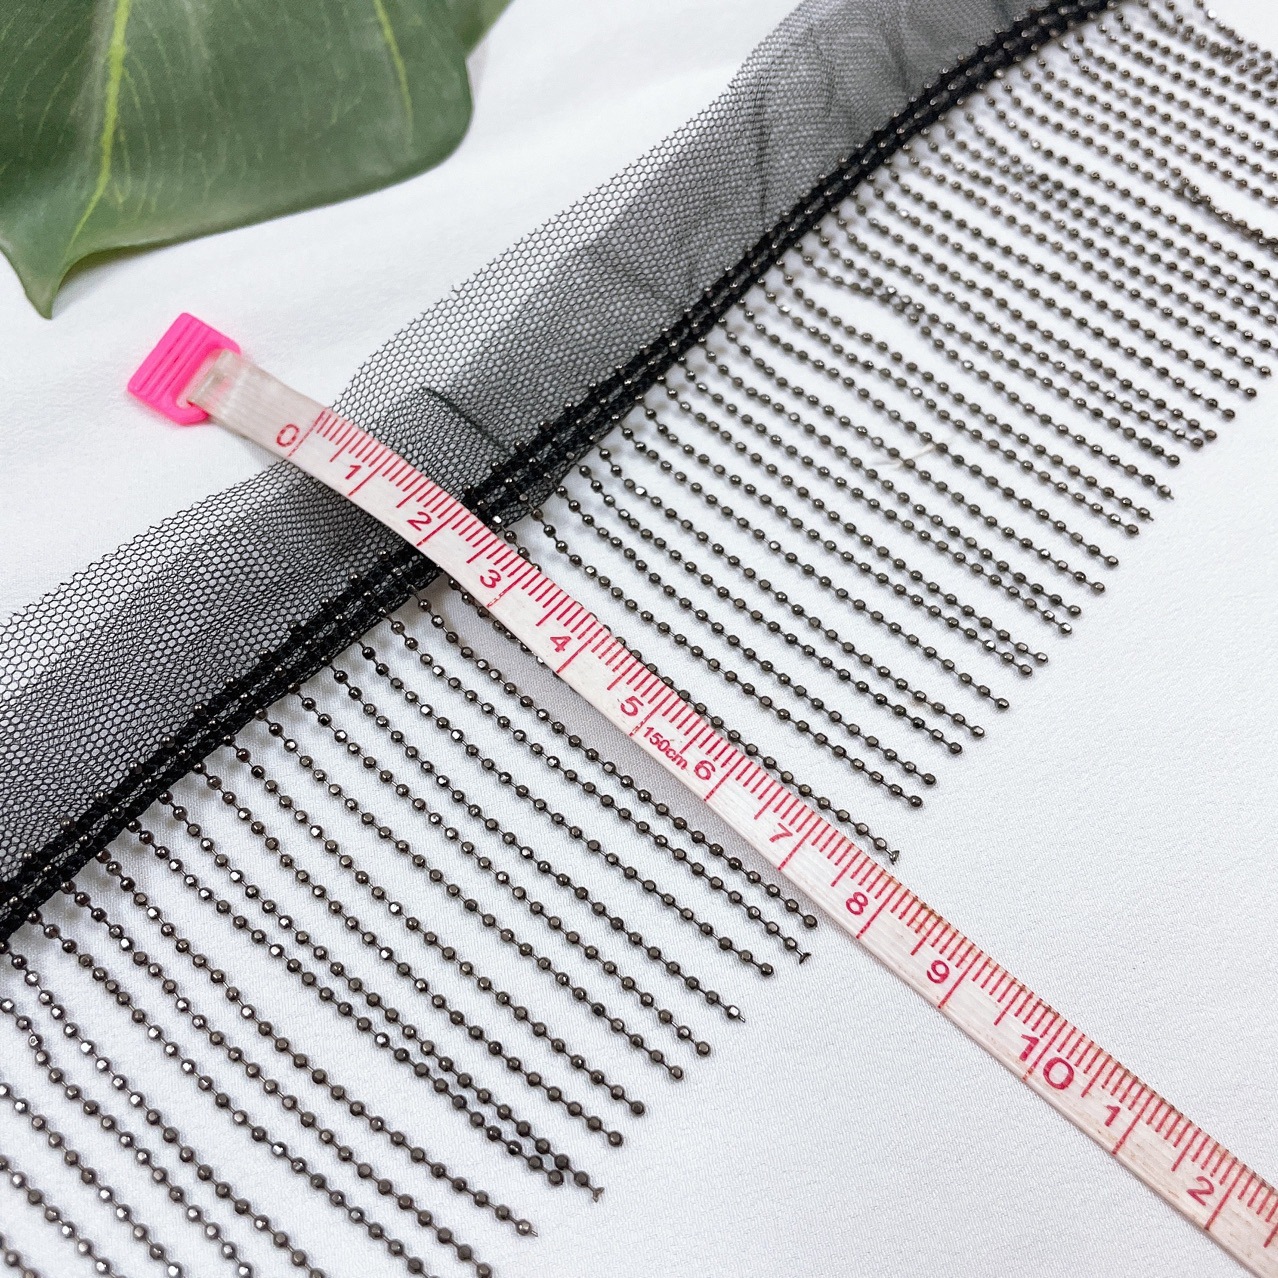 0 1 2 3 4 5 150cm 6 7 8 9 10 1 2